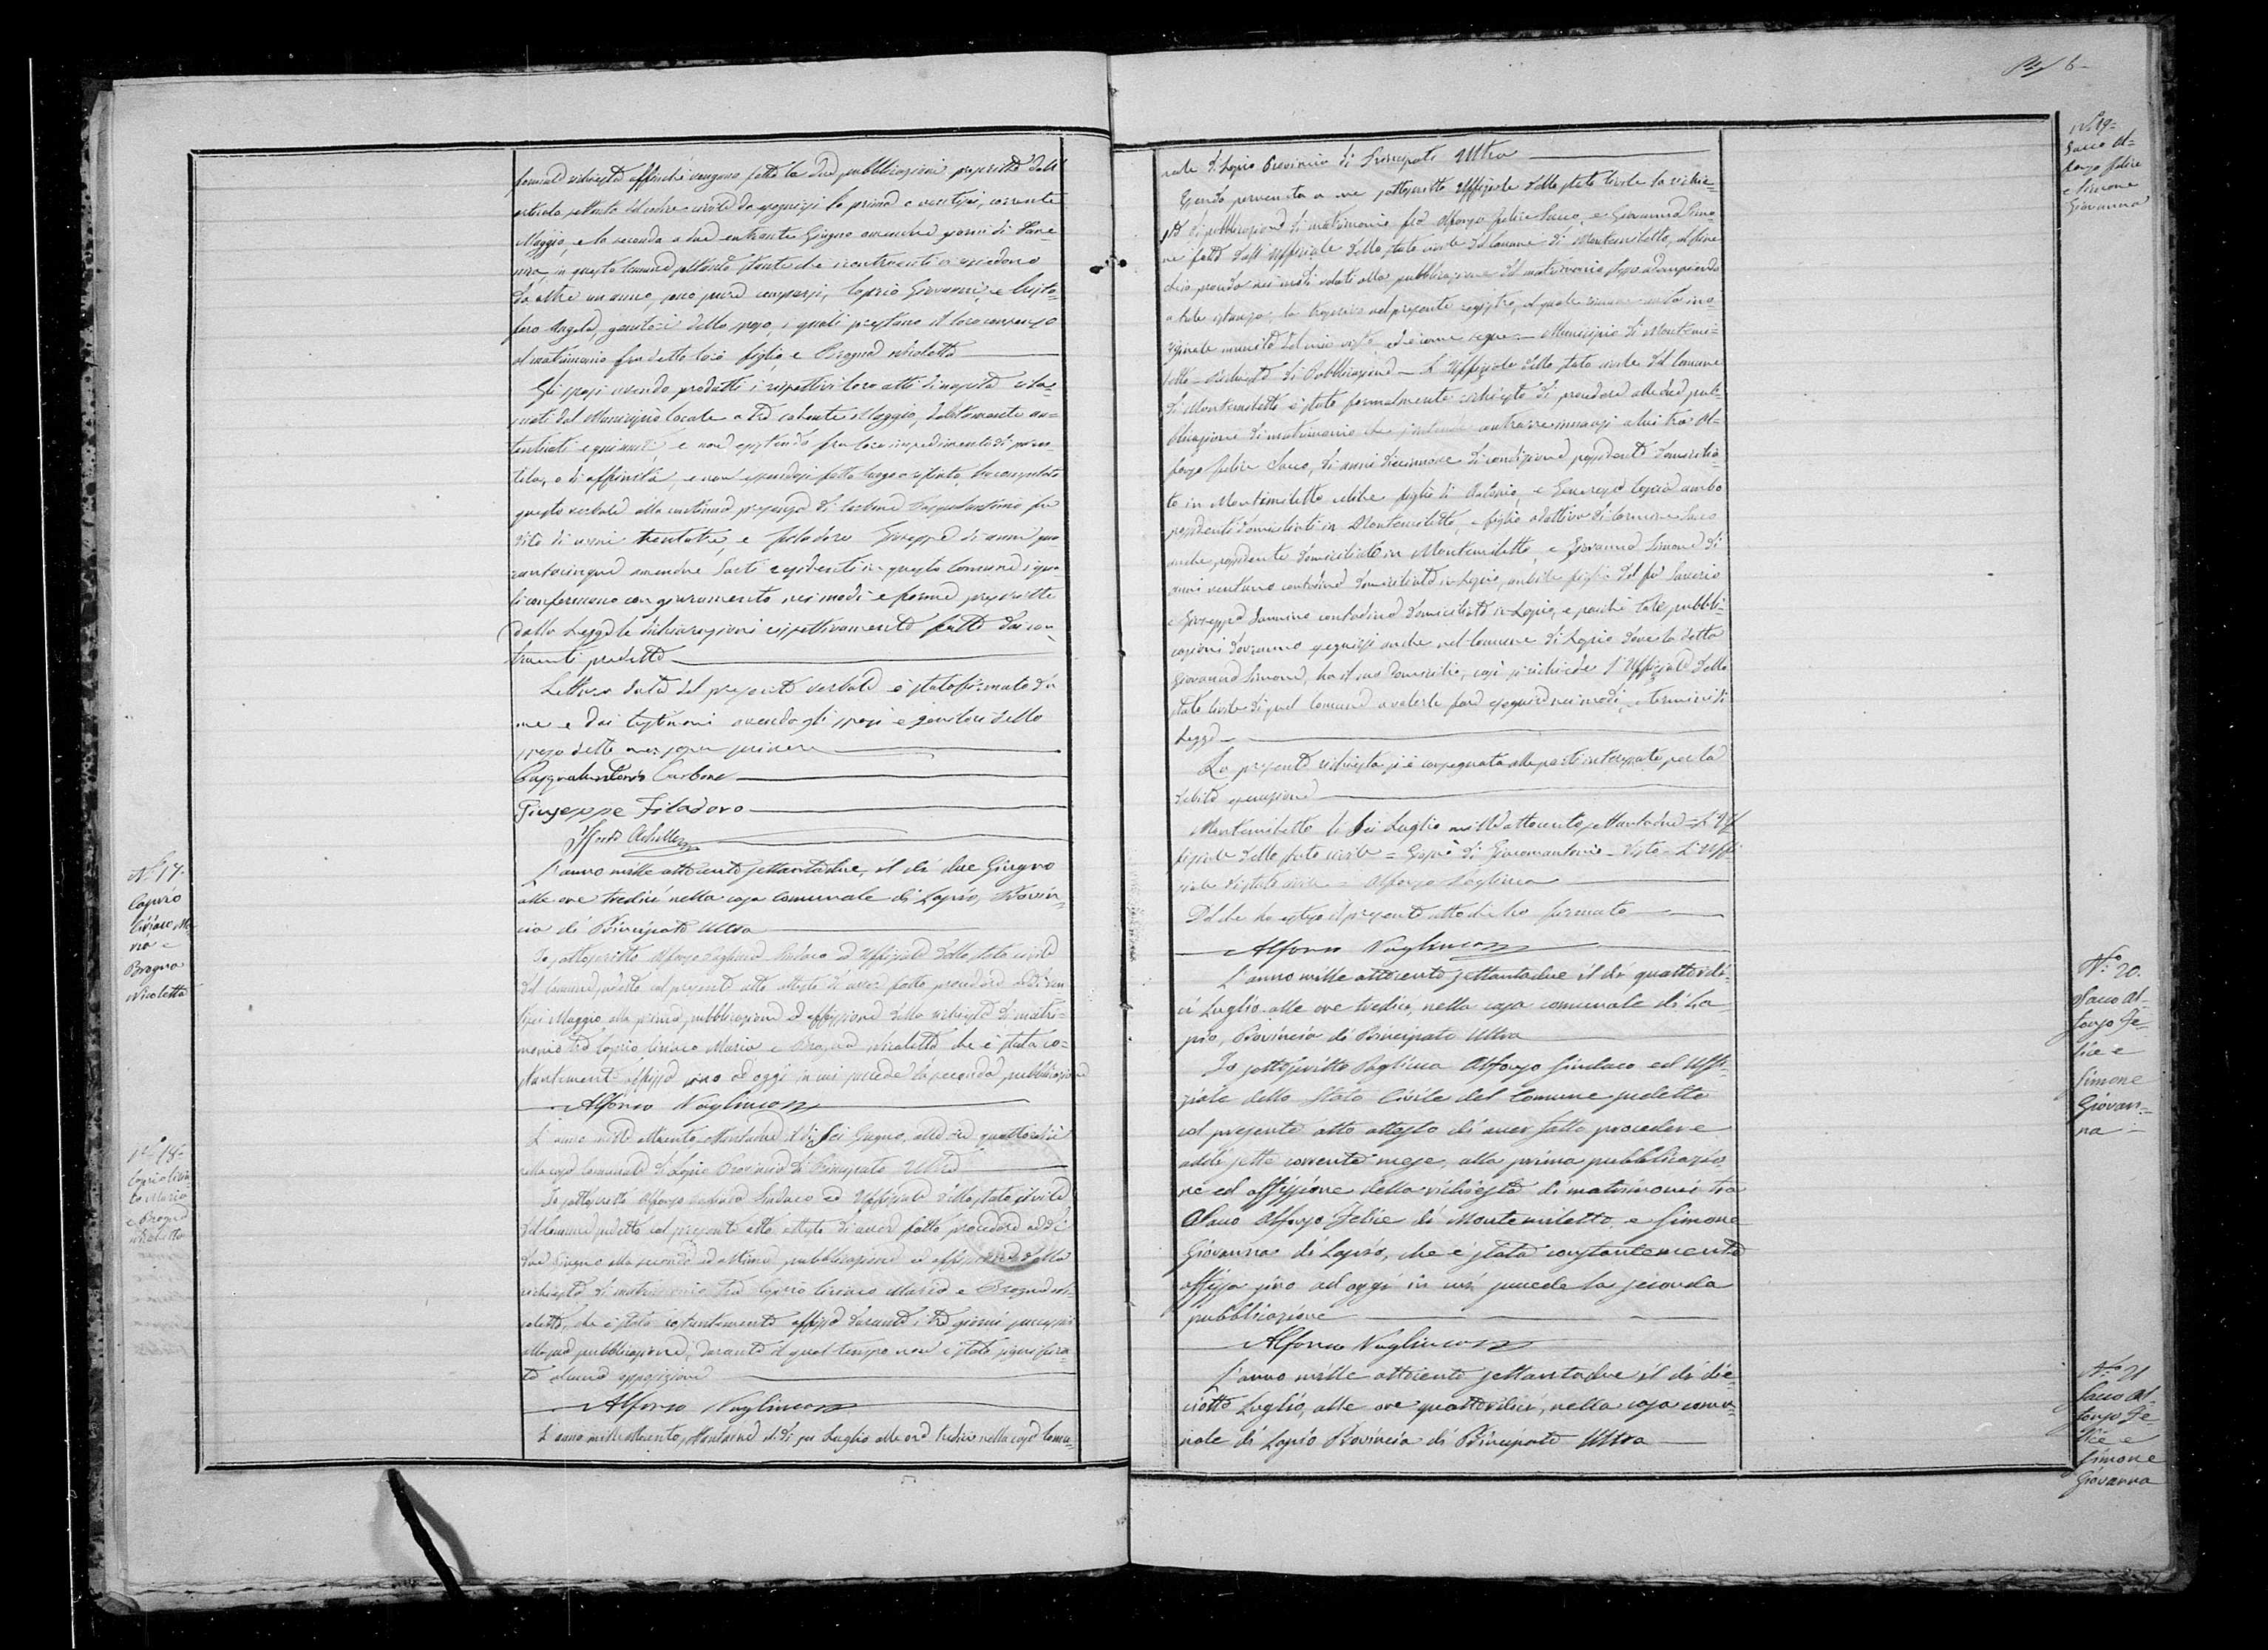 formale richiesta affinché vengano fatte le due pubblicazioni prescritte dall'
articolo settanta del codice civile da eseguirsi la prima a ventisei corrente
Maggio, e la seconda a due entrante Giugno amendue giorni di Dome-
nica, in questo Comune soltanto stante che i contraenti vi risiedono
da oltre un anno, sono pure comparsi, Caprio Giovanni, e
Angela, genitori dello sposo, i quali prestano il loro consenso
al matrimonio fra detto loro figlio, e Brogna Nicoletta
Gli sposi avendo prodotti i rispettivi loro atti di nascita rila-
sciati dal Municipio locale a tre Maggio, debitamente au-
tenticati e e non esistendo fra loro impedimento di paren-
tela, o di affinità, e non essendosi fatto luogo a rifiuto, ho compilato
questo verbale alla continua presenza di Carbone Pasqualantonio fu
Vito di anni trentatre, e Filadoro Giuseppe di anni qua-
rantacinque amendue Sarti residenti in questo Comune i qua-
li confermano con giuramento nei modi e forme prescritte
dalla Legge le dichiarazioni rispettivamente fatte dai con-
traenti predetti
Lettura data del presente verbale è stato firmato da
me e dai testimoni avendo gli sposi e genitori dello
sposo detto non saper scrivere
Pasqualantonio Carbone
Giuseppe Filadoro
Achille
N.º 17.
Caprio
Ciriaco Ma-
ria e
Brogna
Nicoletta
L'anno mille ottocento settantadue, il dì due Giugno
alle ore tredici nella casa comunale di Lapio, Provin-
cia di Principato Ultra
Io sottoscritto Alfonso Vagliuca Sindaco ed Uffiziale dello stato civile
del Comune sudetto col presente atto attesto di aver fatto procedere addì ven
tisei Maggio alla prima pubblicazione ed affissione della richiesta di matri-
monio tra Caprio Ciriaco Maria e Brogna Nicoletta che è stata co-
stantemente affissa sino ad oggi in cui succede la seconda pubblicazione
Alfonso Vagliuca
N.º 18=
Caprio Ciria-
co Maria
e Brogna
Nicoletta
L'anno mille ottocento settantadue il dì sei Giugno, alle ore quattordici
nella casa Comunale di Lapio Provincia di Principato Ultra
Io sottoscritto Alfonso Vagliuca Sindaco ed Uffiziale dello stato civile
del Comune sudetto col presente atto attesto di aver fatto procedere addì
due Giugno alla seconda ed ultima pubblicazione ed affissione della
richiesta di matrimonio tra Caprio Ciriaco Maria e Brogna Ni-
coletta, che è stata costantemente affissa durante i tre giorni successivi
alla sua pubblicazione, durante il qual tempo non è stata
alcuna opposizione
Alfonso Vagliuca
L'anno mille ottocento settantadue il dì sei Luglio alle ore tredici nella casa Comu-
6
N.º 19=
Sacco Al-
fonso Felice
e Simone
Giovanna
nale di Lapio Provincia di Principato Ultra
Essendo pervenuta a me sottoscritto Uffiziale dello stato Civile la richie-
sta di pubblicazione di matrimonio fra Alfonso Felice Sacco, e Giovanna Simo-
ne fatta dall'Uffiziale dello stato civile del Comune di Montemiletto, al fine
ch'io proceda nei modi voluti alla pubblicazione del matrimonio stesso adempiendo
a tale istanza, la trascrivo nel presente registro, al quale rimane
originale munito del mio visto ed è come segue = Municipio di Montemi-
letto - Richiesta di Pubblicazione - L'Uffiziale dello stato civile del Comune
di Montemiletto è stato formalmente richiesto di procedere alle due pub-
blicazioni di matrimonio che contrarre innanzi a lui tra Al-
fonso Felice Sacco, di anni diecinnove di condizione possidente domicilia-
to in Montemiletto celibe figlio di Antonio, e ambo
possidenti domiciliati in Montemiletto, e figlio adottivo di Carmine Sacco
anche possidente domiciliato in Montemiletto, e Giovanna Simone di
anni ventuno contadina domiciliata in Lapio, nubile figlia del fu Saverio
e Giuseppa contadina domiciliata in Lapio, e poiché tale pubbli-
cazioni dovranno eseguirsi anche nel Comune di Lapio dove la detta
Giovanna Simone, ha il suo domicilio, così si richiede l'Uffiziale dello
stato Civile di quel Comune a volerle fare eseguire nei modi, e termini di
Legge
La presente richiesta si è consegnata alle parti interessate per la
debita esecuzione
Montemiletto li sei Luglio mille ottocento settantadue = L'Uf
fiziale dello stato civile = di Giacomantonio - Visto - L'Uffi
ziale di stato civile = Alfonso Vagliuca
Del che ho esteso il presente atto che ho firmato
Alfonso Vagliuca
N.º 20.
Sacco Al-
fonso Fe-
lice e
Simone
Giovan-
na
L'anno mille ottocento settantadue il dì quattordi-
ci Luglio alle ore tredici, nella casa comunale di La-
pio, Provincia di Principato Ultra
Io sottoscritto Vagliuca Alfonso Sindaco ed Uffi-
ziale dello Stato Civile del Comune sudetto
col presente atto attesto di aver fatto procedere
addì sette corrente mese, alla prima pubblicazio-
ne ed affissione della richiesta di matrimonio tra
Sacco Alfonso Felice di Montemiletto, e Simone
Giovanna di Lapio, che è stata costantemente
affissa sino ad oggi in cui succede la seconda
pubblicazione
Alfonso Vagliuca
N.º 21
Sacco Al-
fonso Fe-
lice e
Simone
Giovanna
L'anno mille ottocento settantadue il dì die-
ciotto Luglio, alle ore quattordici, nella casa comu-
nale di Lapio Provincia di Principato Ultra